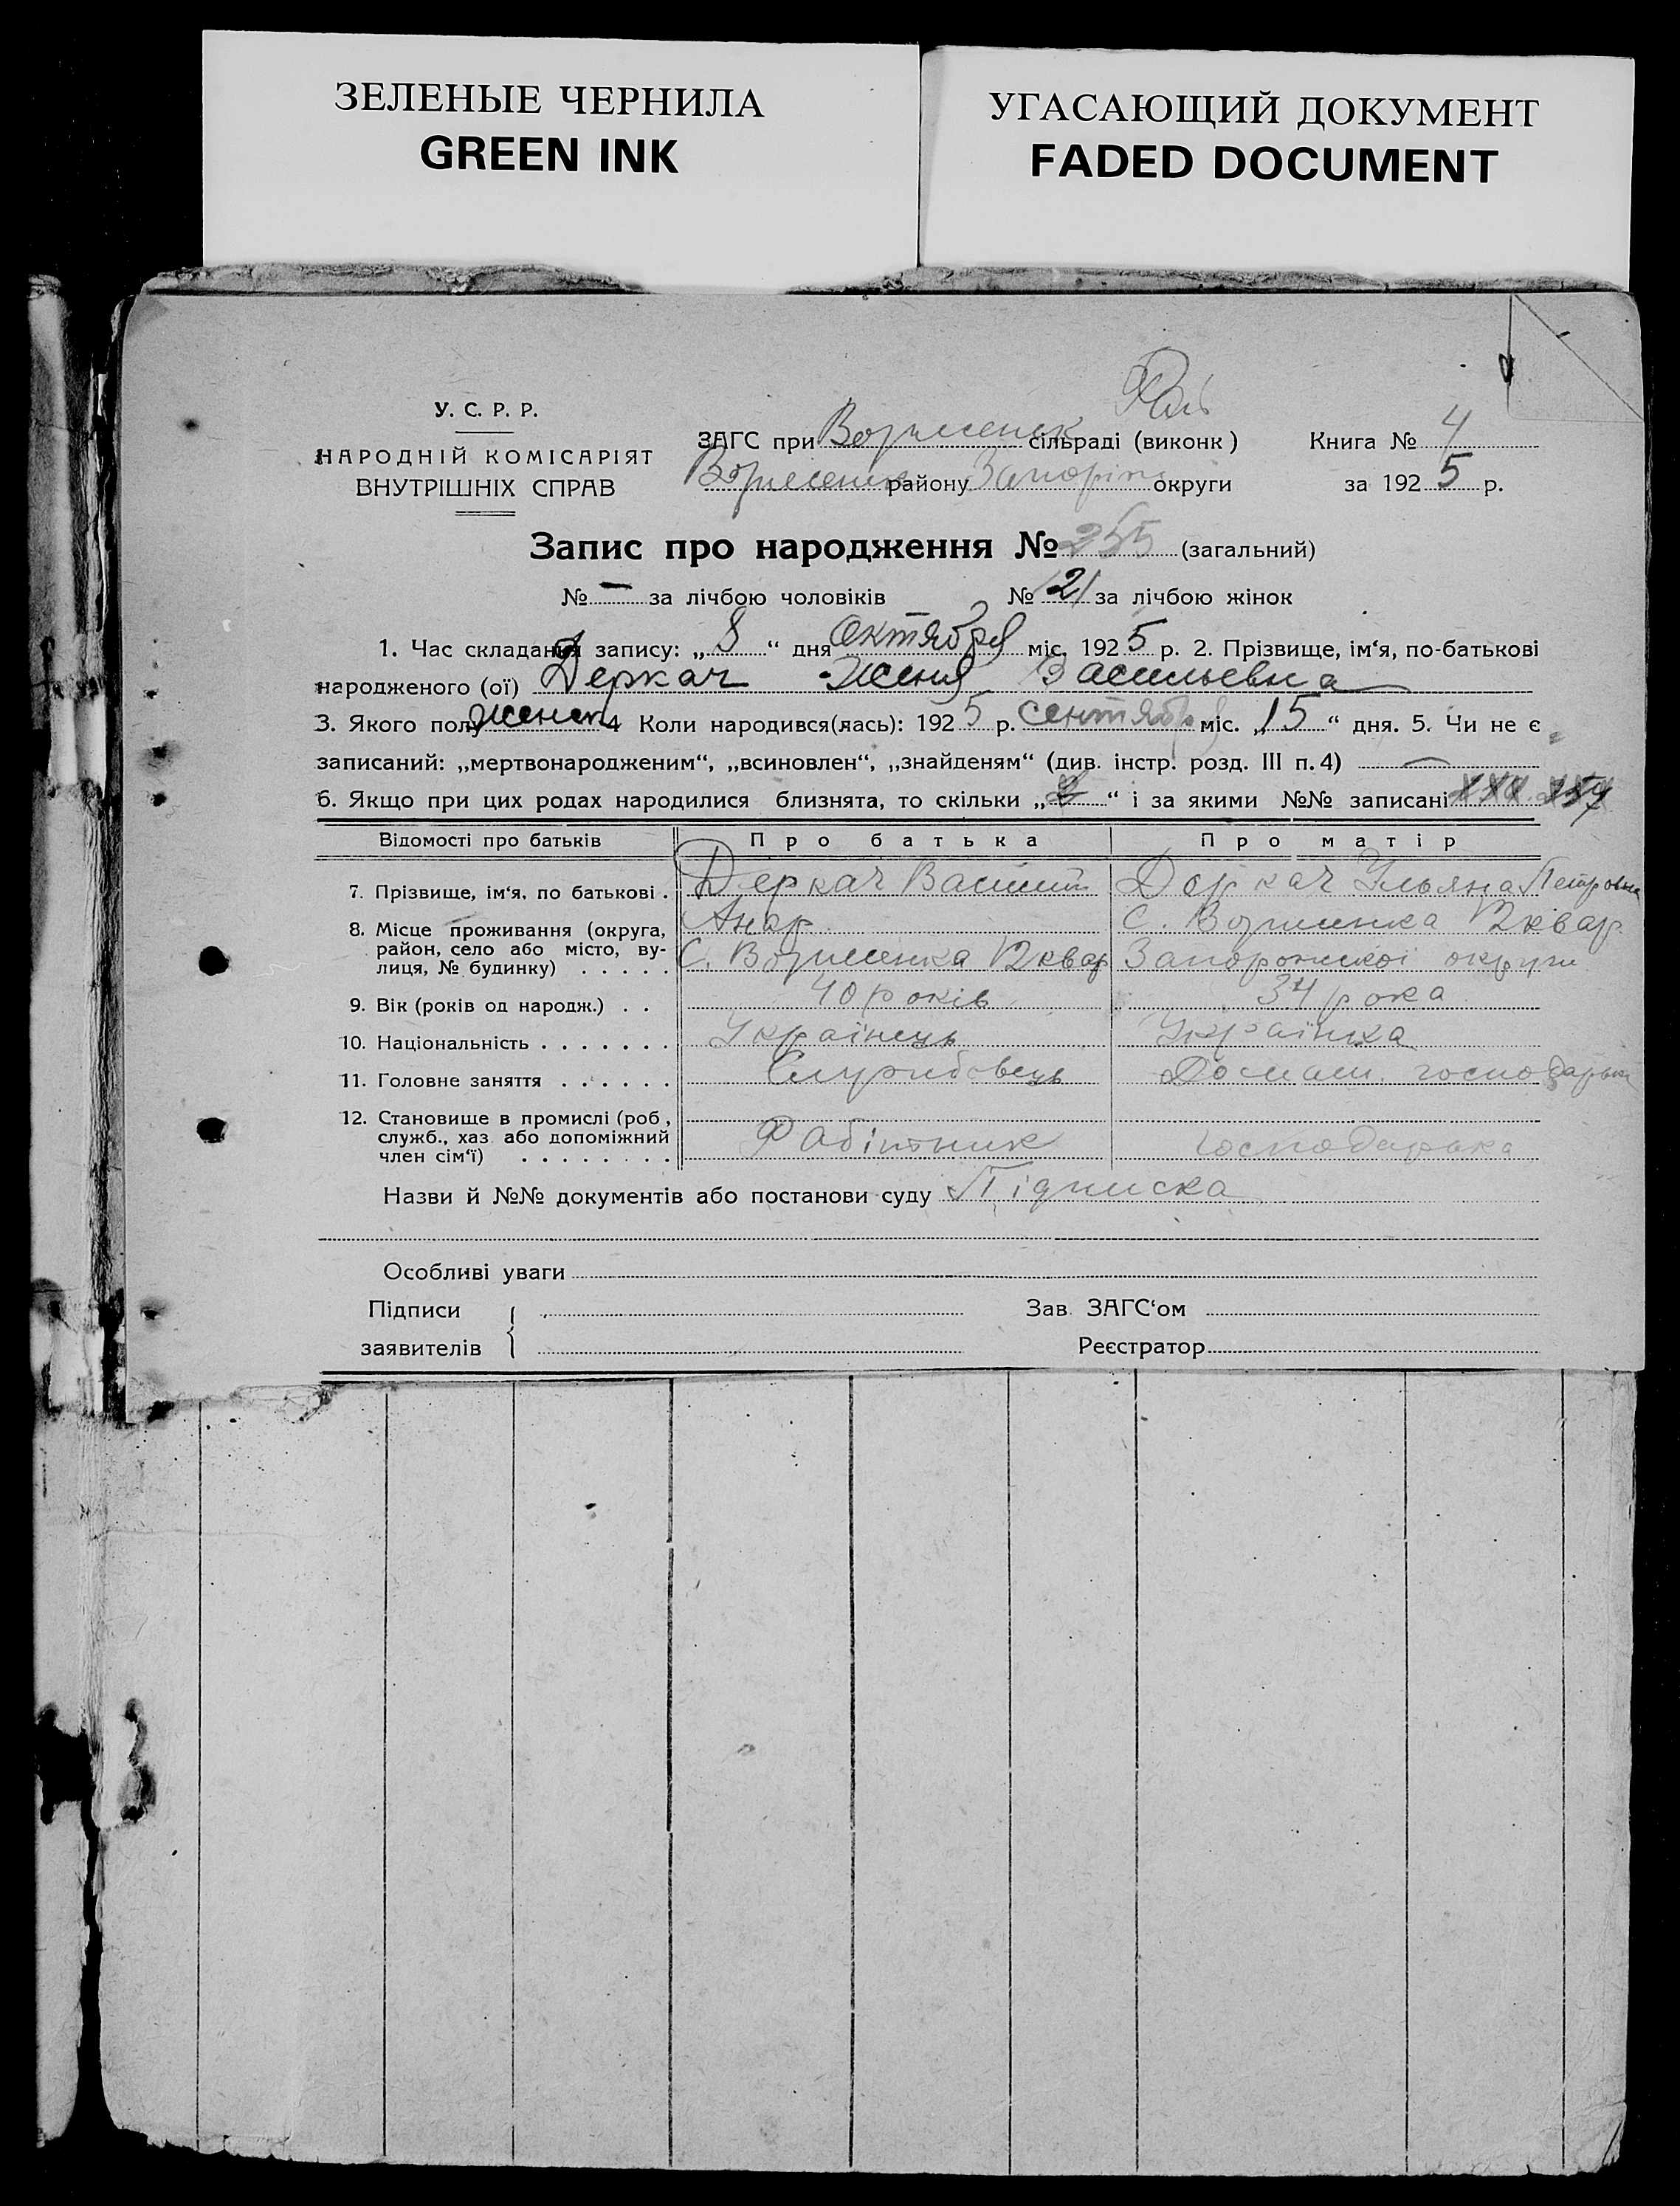 ЗЕЛЕНЫЕ ЧЕРНИЛА
GREEN INK
УГАСАЮЩИЙ ДОКУМЕНТ
FADED DOCUMENT
У. С. Р. Р.
НАРОДНІЙ КОМІСАРІЯТ
ВНУТРІШНІХ СПРАВ
ЗАГС при сільраді (виконк)
району Запоріж округи
Книга № 4
за 1925 р.
Запис про народження № 255 (загальний)
№ — за лічбою чоловіків № 121 за лічбою жінок
1. Час складання запису: „8“ дня Октября міс. 1925 р. 2. Прізвище, ім‘я, по-батькові
народженого (ої) Деркач Женя Васильевна
3. Якого полу женск 4 Коли народився(лась): 1925 р. сентября міс. „15“ дня. 5. Чи не є
записаний: „мертвонародженим“, „всиновлен“, „знайденям“ (див. інстр. розд. III п. 4) —
6. Якщо при цих родах народилися близнята, то скільки „ “ і за якими №№ записані
Відомості про батьків Про батька Про матір
7. Прізвище, ім‘я, по батькові . Деркач Василий Деркач Ульяна Петровна
8. Місце проживання (округа, район, село або місто, вулиця, № будинку) . . . . .
С. 12 квар
С. 12 квар
Запорожскої округи
9. Вік (років од народж.) . . 40 років 34 рока
10. Національність . . . . . . . Українець Українка
11. Головне заняття . . . . . . Службовець Домаш. господарька
12. Становище в промислі (роб., служб., хаз. або допоміжний член сім‘ї) . . . . . . . . Робітник господарька
Назви й №№ документів або постанови суду Підписка
Особливі уваги
Підписи
заявителів
Зав. ЗАГС‘ом
Реєстратор